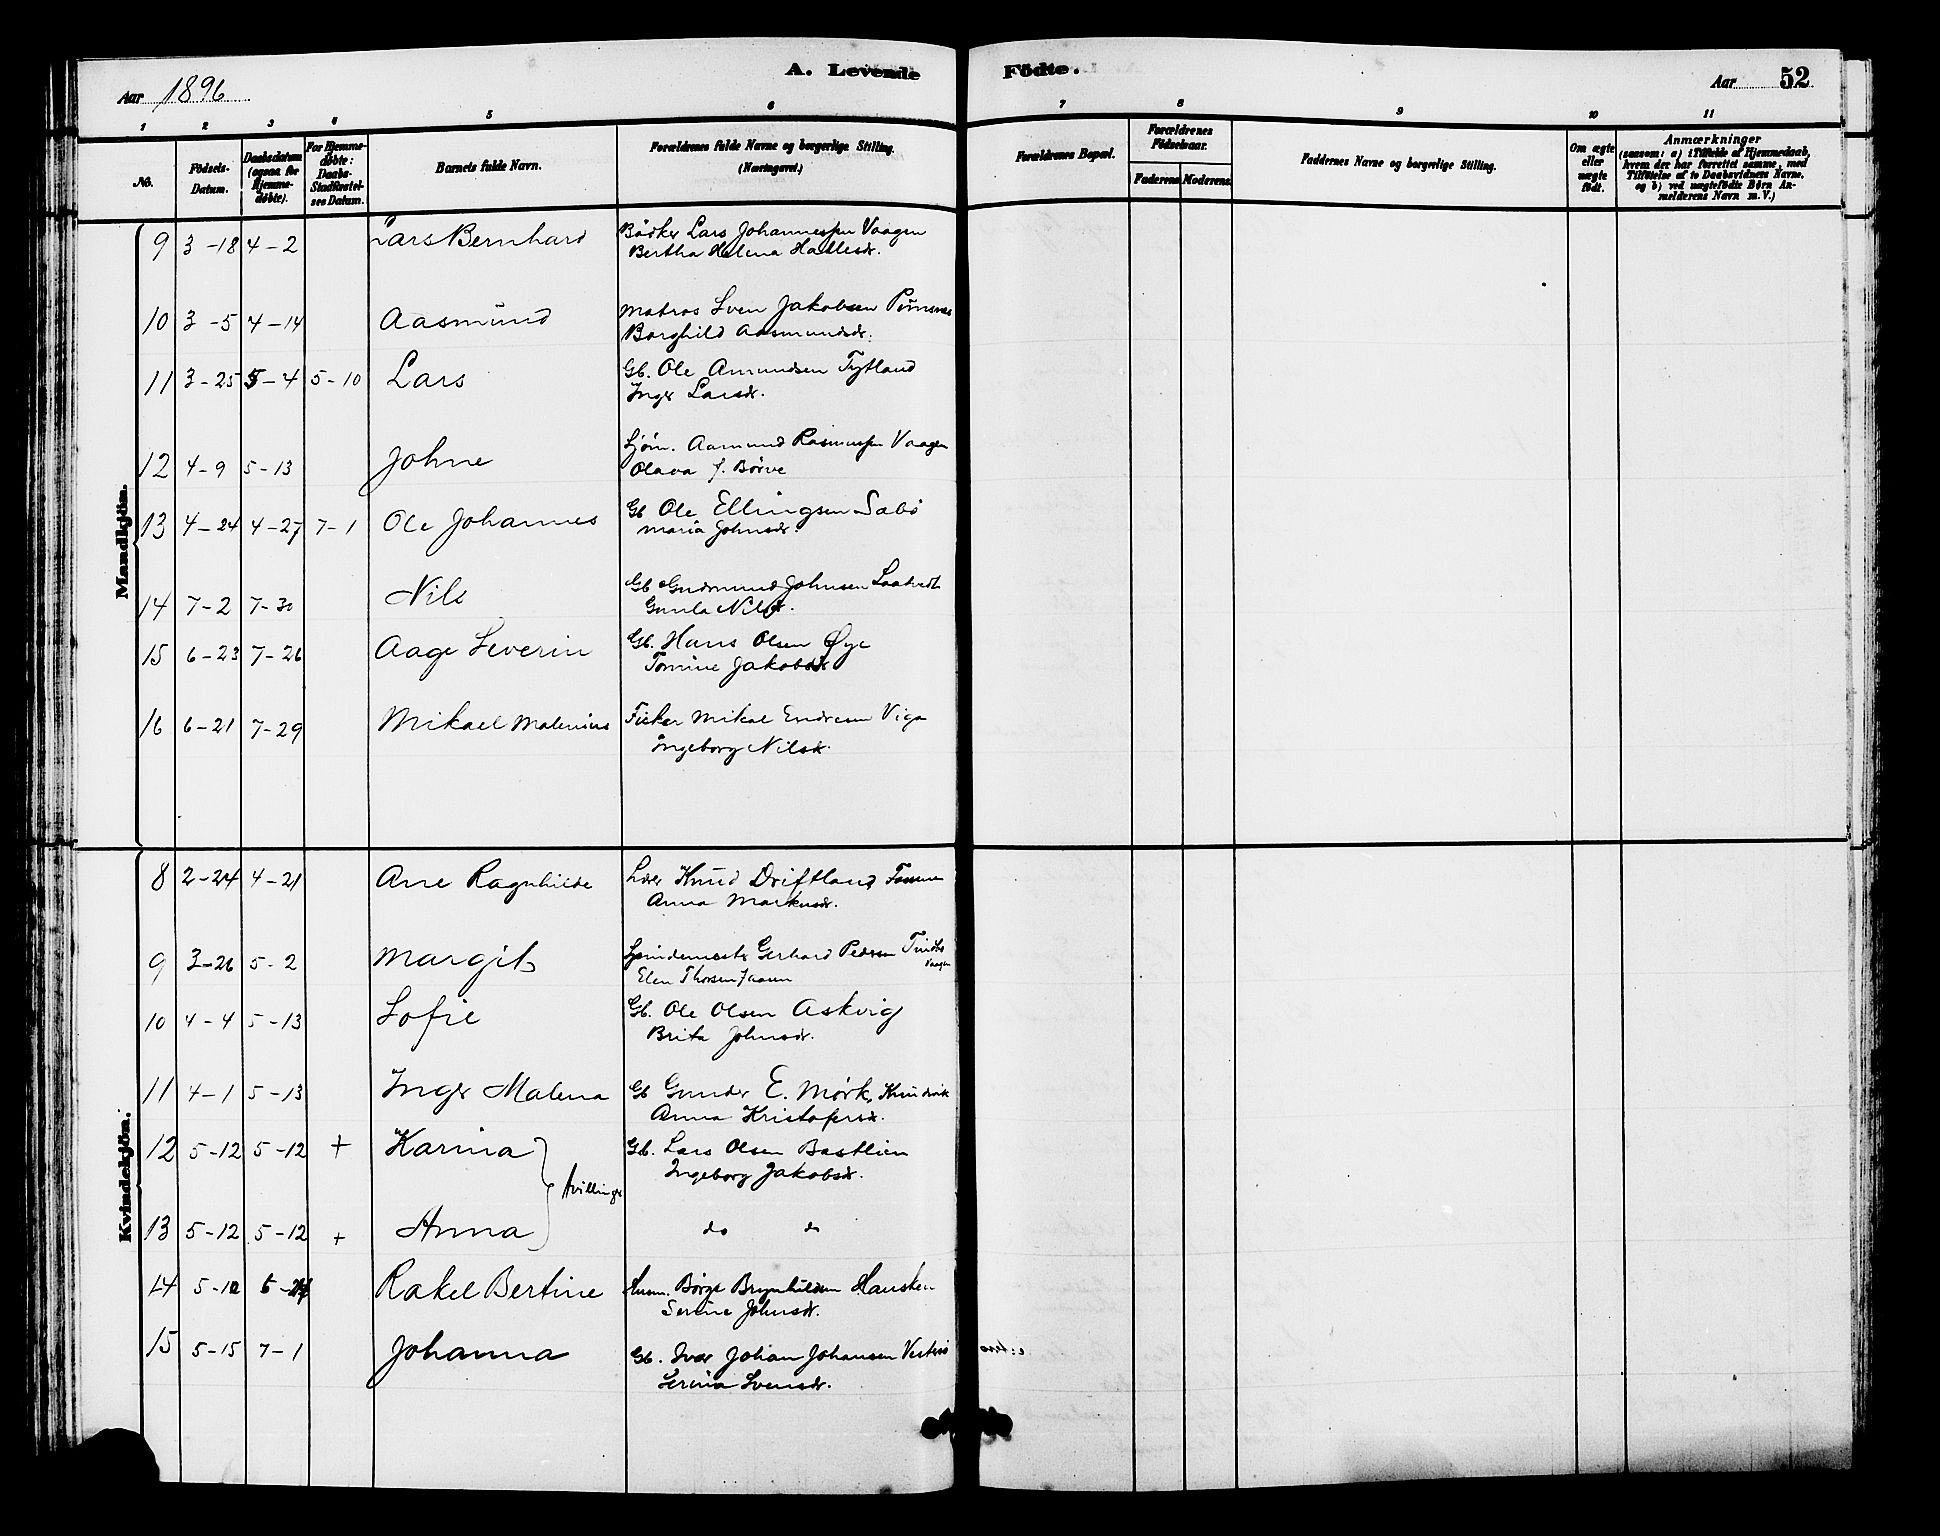 A. Levende Födte.
Aar 1896
Aar 52
1 2 3 4 5 6 7 8 9 10 11
No.
Födsels-Datum.
Daabsdatum (ogsaa for Hjemme-döbte).
For Hjemme-döbte: Daabs-Stadfæstel-ses Datum.
Barnets fulde Navn.
Forældrenes fulde Navne og borgerlige Stilling. (Næringsvei.)
Forældrenes Bopæl.
Forældrenes Födselsaar.
Faderens. Moderens.
Faddernes Navne og borgerlige Stilling.
Om ægte eller uægte födt.
Anmærkninger
(saasom: a) i Tilfælde af Hjemmedaab, hvem der har forrettet samme, med Tilföielse af to Daabsvidners Navne, og b) ved uægtefödte Börn An-melderens Navn m. V.)
Mandkjön.
9 3-18 4-2 Lars Bernhard Bödker Lars Johannessen Vaagen
Bertha Helena Hallesdr.
10 3-5 4-14 Aasmund Matros Sven Jakobsen
Borghild Aasmundsdr.
11 3-25 5-4 5-10 Lars Gb. Ole Amundsen Tytland
Inger Larsdr.
12 4-9 5-13 Johne Sjöm. Aamund Rasmussen Vaagen
Olava f. Börve
13 4-24 4-27 7-1 Ole Johannes Gb Ole Ellingsen Sabö
Maria Johnsdr.
14 7-2 7-30 Nils Gb. Gudmund Johnsen
Gunla Nilsdr.
15 6-23 7-26 Aage Severin Gb. Hans Olsen Øye
Tomine Jakobsdr
16 6-21 7-29 Mikael Malenius Fisker Mikal Endresen Viga
Ingeborg Nilsdr.
Kvindekjön.
8 2-24 4-21 Ane Ragnhilde Lærer Knud Driftland
Anna Markusdr.
9 3-26 5-2 Margit Gerhard Pedersen
Vaagen
Elen Thorsen
10 4-4 5-13 Sofie Gb. Ole Olsen Askvig
Brita Johnsdr.
11 4-1 5-13 Inger Malena Gb Gunder E. Mörk,
Anna Kristofersdr.
12 5-12 5-12 + Karina Gb. Lars Olsen Bastlien
Ingeborg Jakobsdr.
tvillinger
13 5-12 5-12 + Anna do do
14 5-10 Rakel Bertine Börge Brynhildsen Hausken
Serine Johnsdr.
15 5-15 7-1 Johanna Gb. Ivar Johan Johansen
Serina Svensdr.